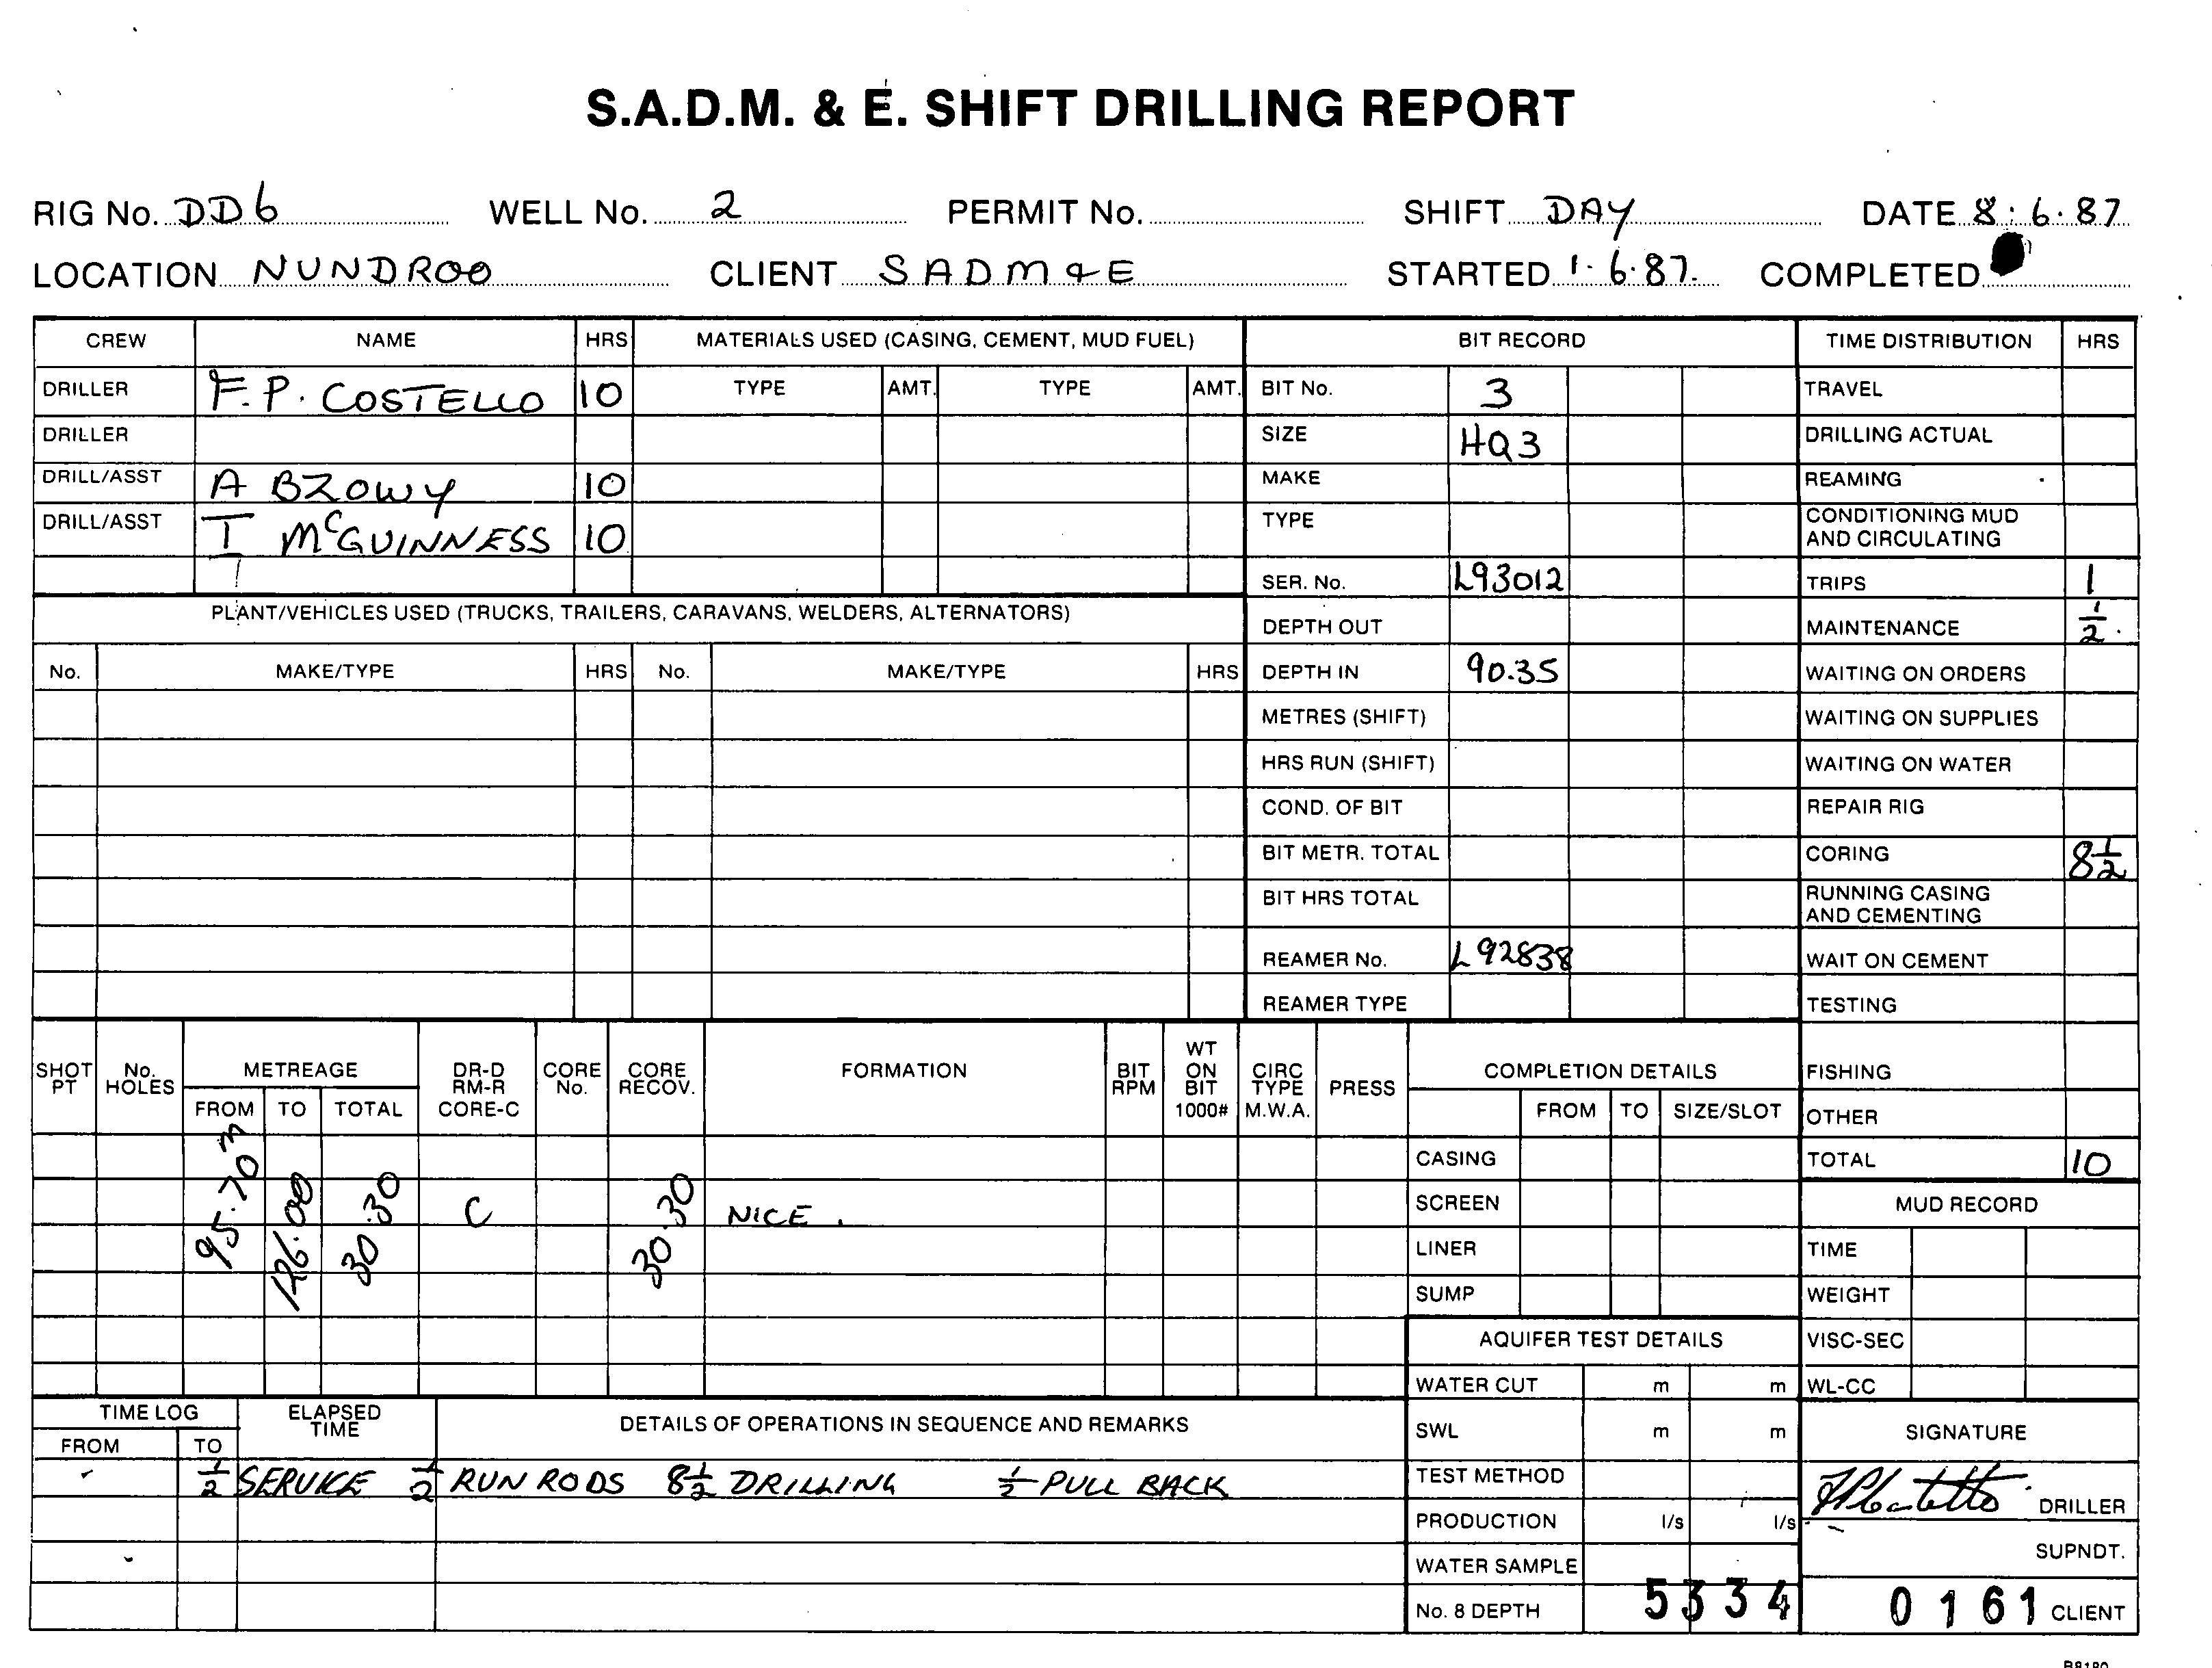 S.A.D.M. & E. SHIFT DRILLING REPORT
RIG No. DD6 WELL No. 2 PERMIT No. SHIFT DAY DATE 8.6.87
LOCATION NUNDROO CLIENT SADM&E STARTED 1.6.87. COMPLETED
CREW NAME HRS MATERIALS USED (CASING, CEMENT, MUD FUEL) BIT RECORD TIME DISTRIBUTION HRS
DRILLER F.P. COSTELLO 10 TYPE AMT. TYPE AMT. BIT No. 3 TRAVEL
DRILLER SIZE HQ3 DRILLING ACTUAL
DRILL/ASST A BZOWY 10 MAKE REAMING
DRILL/ASST I McGUINNESS 10 TYPE CONDITIONING MUD AND CIRCULATING
SER. No. L93012 TRIPS 1
PLANT/VEHICLES USED (TRUCKS, TRAILERS, CARAVANS, WELDERS, ALTERNATORS) DEPTH OUT MAINTENANCE 1/2
No. MAKE/TYPE HRS No. MAKE/TYPE HRS DEPTH IN 90.35 WAITING ON ORDERS
METRES (SHIFT) WAITING ON SUPPLIES
HRS RUN (SHIFT) WAITING ON WATER
COND. OF BIT REPAIR RIG
BIT METR. TOTAL CORING 8 1/2
BIT HRS TOTAL RUNNING CASING AND CEMENTING
REAMER No. L92838 WAIT ON CEMENT
REAMER TYPE TESTING
SHOT PT No. HOLES METREAGE DR-D RM-R CORE-C CORE No. CORE RECOV. FORMATION BIT RPM WT ON BIT 1000# CIRC TYPE M.W.A. PRESS COMPLETION DETAILS FISHING
FROM TO TOTAL FROM TO SIZE/SLOT OTHER
CASING TOTAL 10
95.70m 126.00 30.30 C 30.30 NICE. SCREEN MUD RECORD
LINER TIME
SUMP WEIGHT
AQUIFER TEST DETAILS VISC-SEC
WATER CUT m m WL-CC
TIME LOG ELAPSED TIME DETAILS OF OPERATIONS IN SEQUENCE AND REMARKS SWL m m SIGNATURE
FROM TO
1/2 SERVICE 1/2 RUN RODS 8 1/2 DRILLING 1/2 PULL BACK TEST METHOD
PRODUCTION l/s l/s DRILLER
WATER SAMPLE SUPNDT.
No. 8 DEPTH 5334 0161 CLIENT